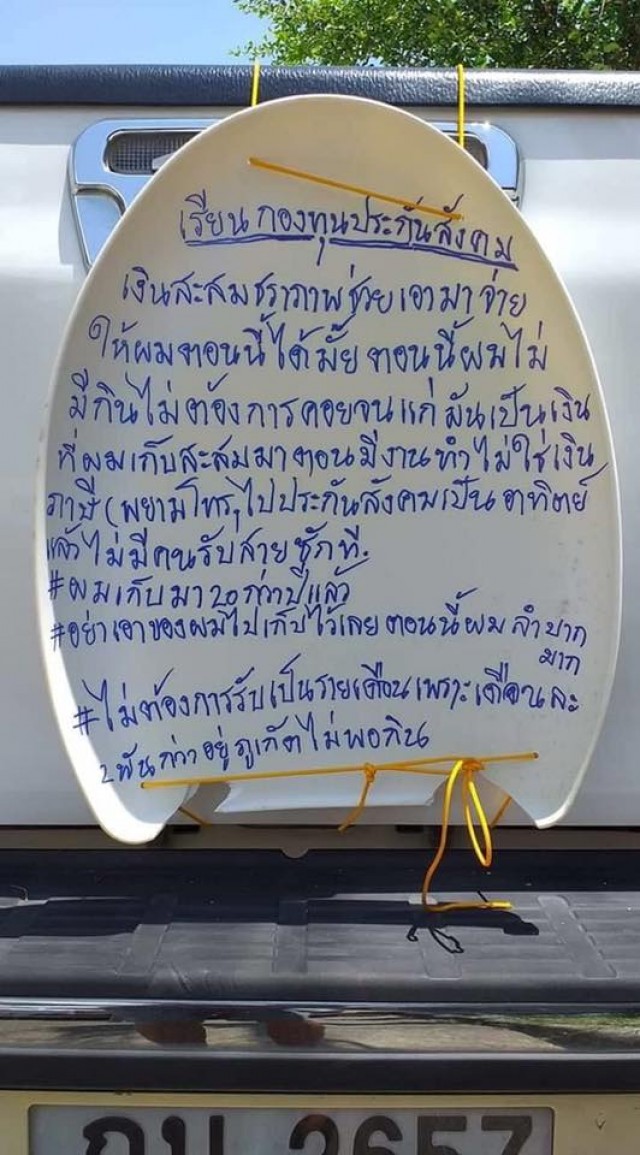 เรียนกองทุนประกันสังคม
เงินสะสมชราภาพช่วยเอามาจ่าย
ให้ผมตอนนี้ได้มั้ย ตอนนี้ผมไม่
มีกินไม่ต้องการคอยจนแก่ มันเป็นเงิน
ที่ผมเก็บสะสมมาตอนมีงานทำไม่ใช่เงิน
ภาษี (พยามโทรไปประกันสังคมเป็นอาทิตย์
แล้วไม่มีคนรับสายซักที.
#ผมเก็บมา 20 กว่าปีแล้ว
#อย่าเอาของผมไปเก็บไว้เลย ตอนนี้ผม ลำบาก
มาก
#ไม่ต้องการรับเป็นรายเดือนเพราะเดือนละ
2 พันกว่า อยู่ภูเก็ตไม่พอกิน
2657